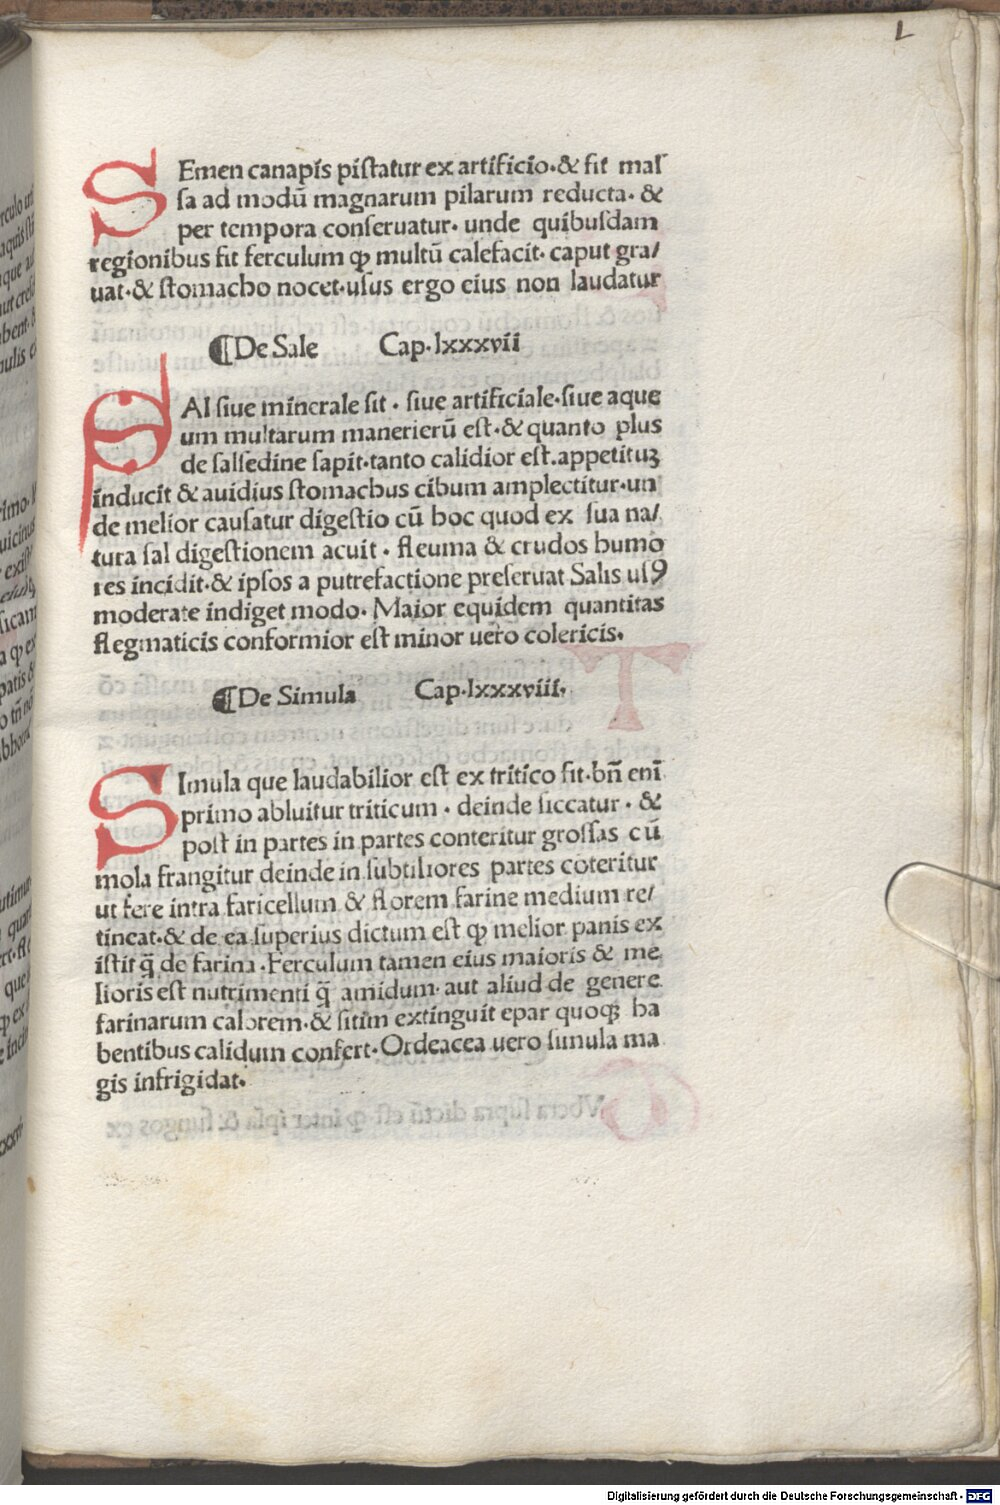 SEmen canapis piſtatur ex artificio·& fit maſ
ſa ad modū magnarum pilarum reducta· &
per tempora conſeruatur· unde quibuſdam
regionibus fit ferculum ꝙ multū calefacit· caput gra/
uat·& ſtomacho nocet·uſus ergo eius non laudatur
¶De Sale Cap·lxxxvii
SAl ſiue minerale ſit · ſiue artificiale·ſiue aque
um multarum manerierū eſt·& quanto plus
de ſalſedine ſapit·tanto calidior eſt.appetituꝫ
inducit & auidius ſtomachus cibum amplectitur·un
de melior cauſatur digeſtio cū hoc quod ex ſua na/
tura ſal digeſtionem acuit · fleuma & crudos humo
res incidit·& ipſos a putrefactione preſeruat Salis uſꝰ
moderate indiget modo· Maior equidem quantitas
flegmaticis conformior eſt minor uero colericis.
¶De Simula Cap·lxxxviii.
SImula que laudabilior eſt ex tritico fit·bn̄ eni
primo abluitur triticum · deinde ſiccatur · &
poſt in partes in partes conteritur groſſas cū
mola frangitur deinde in ſubtiliores partes coteritur
ut fere intra faricellum & florem farine medium re/
tineat·& de ea ſuperius dictum eſt ꝙ melior panis ex
iſtit q̄ de farina ·Ferculum tamen eius maioris & me
lioris eſt nutrimenti q̄ amidum· aut aliud de genere
farinarum calorem·& ſitim extinguit epar quoqꝫ ha
bentibus calidum confert·Ordeacea uero ſimula ma
gis infrigidat.
Digitalisierung gefördert durch die Deutsche Forschungsgemeinschaft - DFG